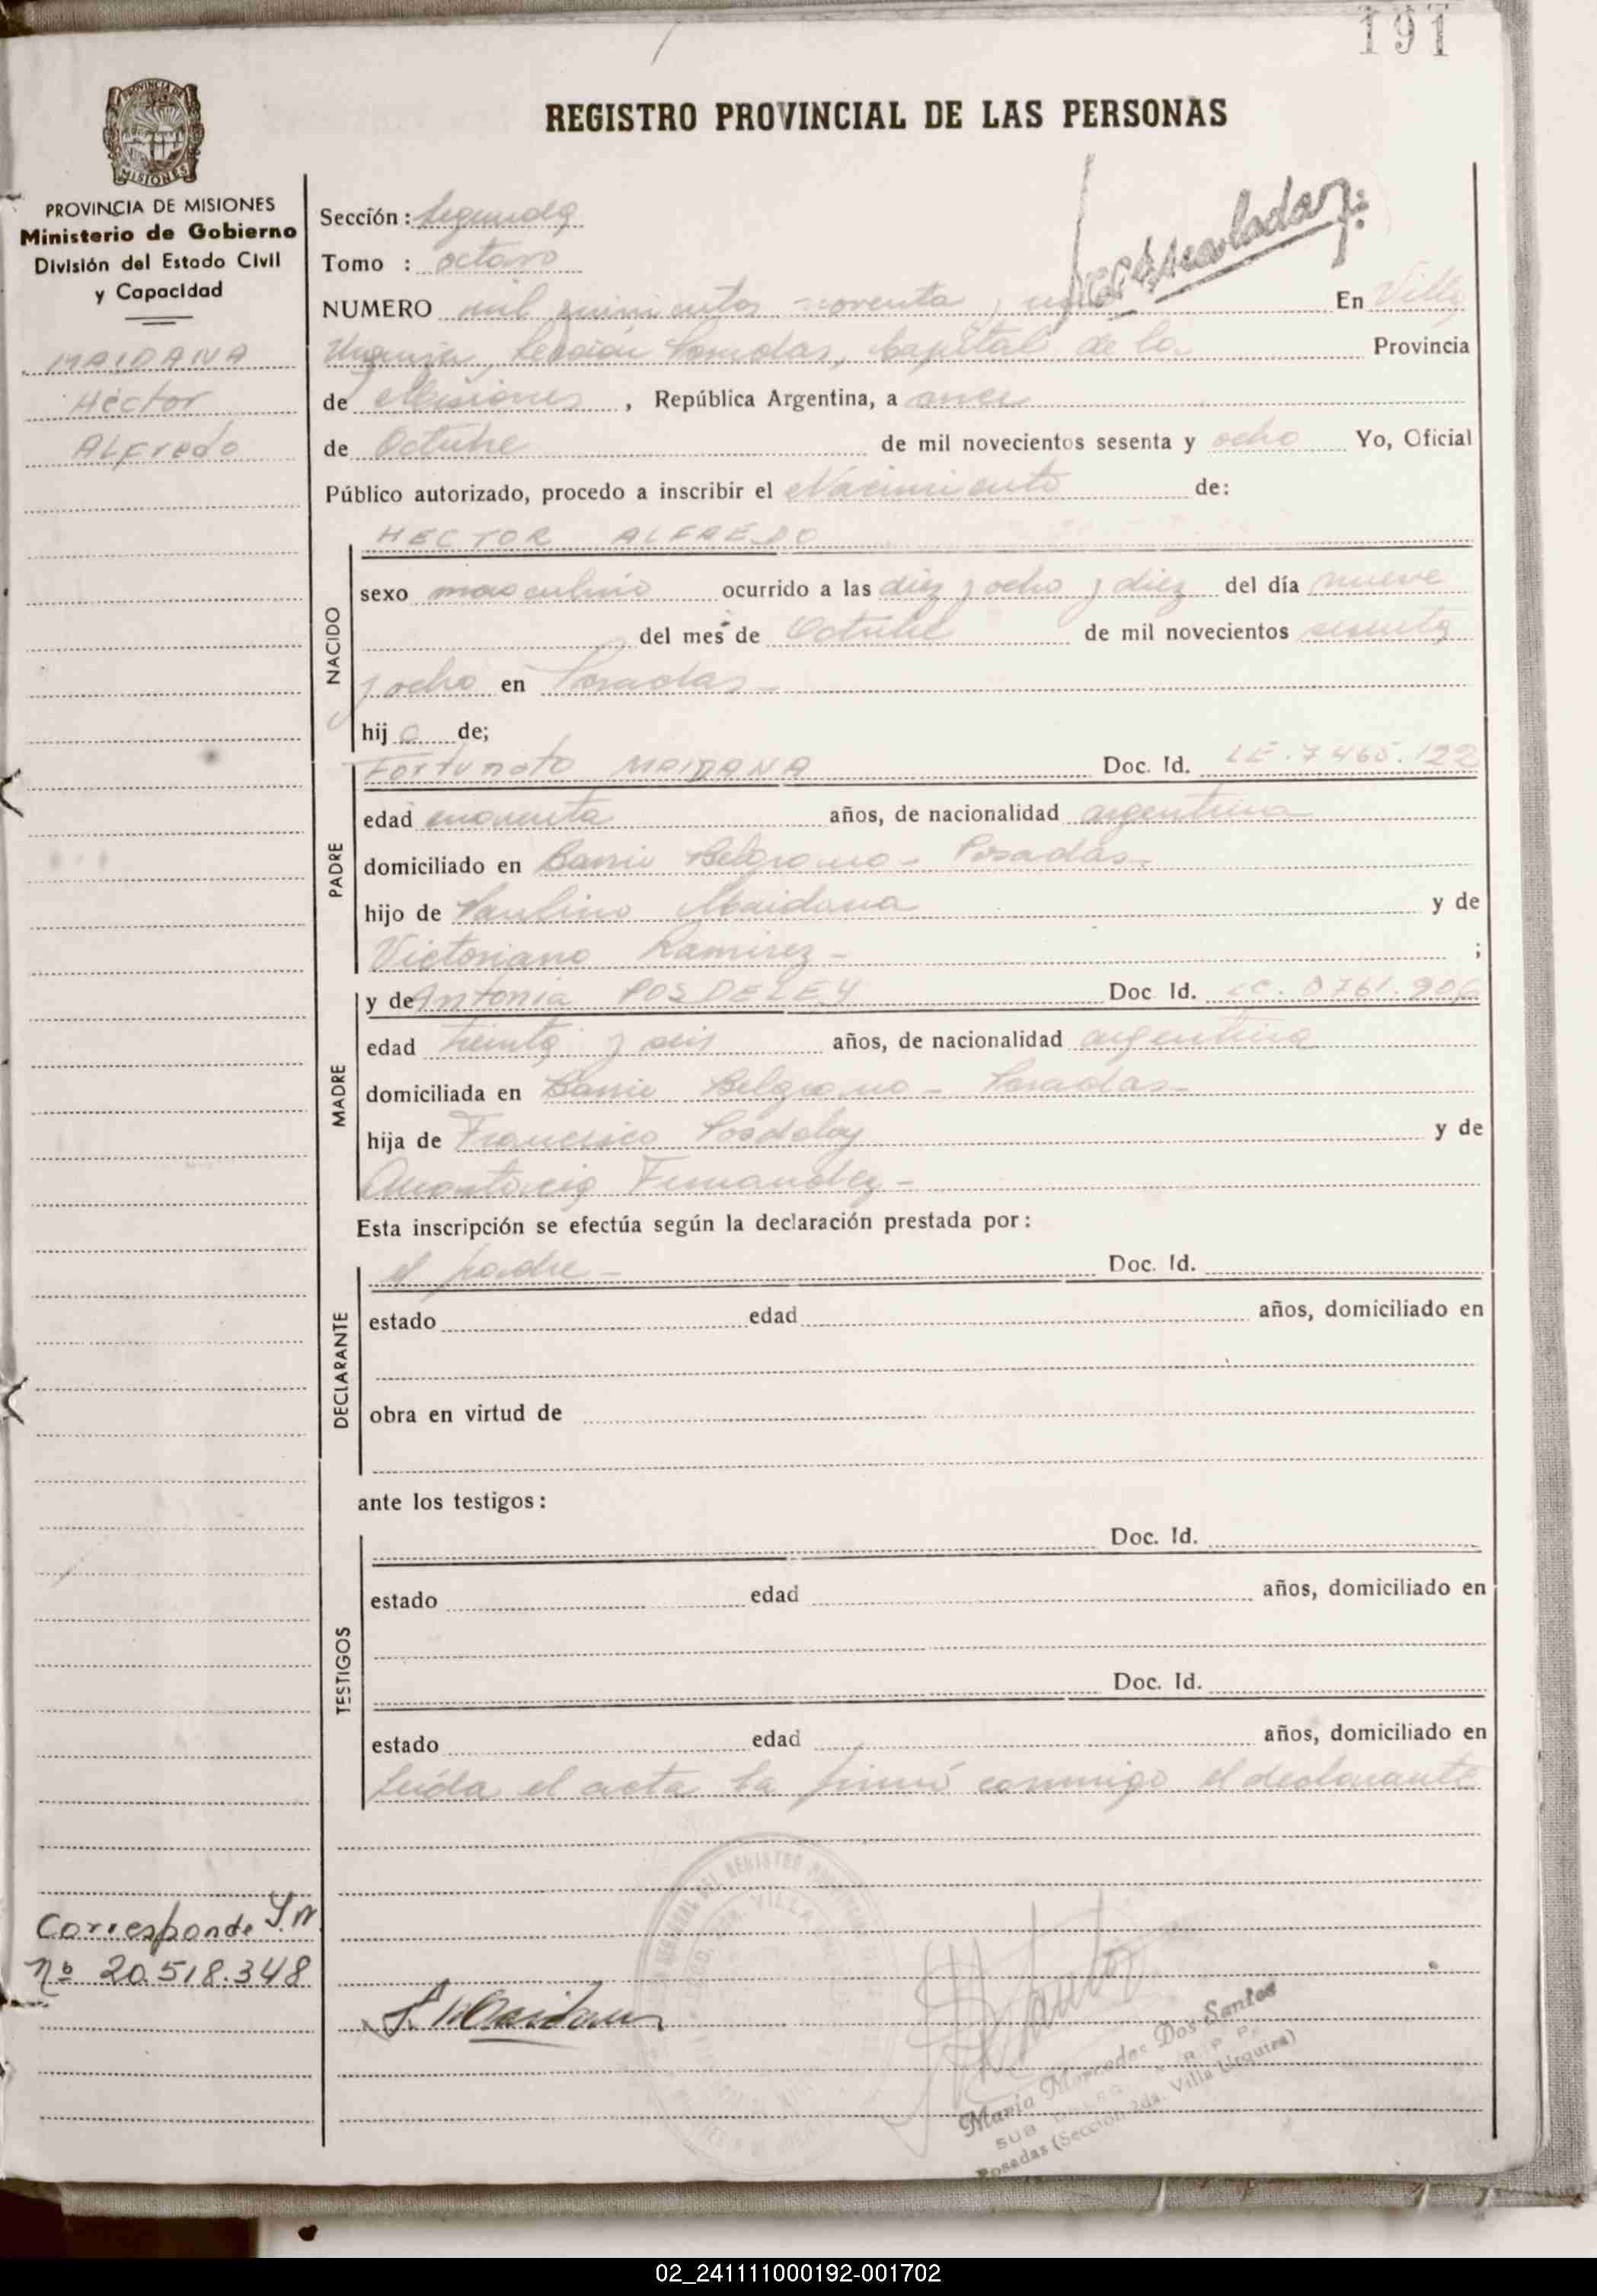 191
REGISTRO PROVINCIAL DE LAS PERSONAS
PROVINCIA DE MISIONES
MISIONES
PROVINCIA DE MISIONES
Ministerio de Gobierno
División del Estado Civil
y Capacidad
MAIDANA
Héctor
ALFredo
Sección: Segunda
Tomo : octavo
NUMERO mil quinientos noventa y uno En Villa
Urquiza, Sección Posadas, Capital de la Provincia
de Misiones, República Argentina, a once
de Octubre de mil novecientos sesenta y ocho Yo, Oficial
Público autorizado, procedo a inscribir el Nacimiento de:
HECTOR ALFREDO
NACIDO
sexo masculino ocurrido a las diez y ocho y diez del día nueve
del mes de Octubre de mil novecientos sesenta
y ocho en Posadas-
hijo de;
PADRE
Fortunato MAIDANA Doc. Id. LE.7465.122
edad años, de nacionalidad argentina
domiciliado en Barrio Belgrano - Posadas-
hijo de Paulino Maidana y de
Victoriana Ramirez - ;
MADRE
y de Antonia POSDELEY Doc Id. LC. 0761.906
edad treinta y seis años, de nacionalidad argentina
domiciliada en Barrio Belgrano - Posadas-
hija de Francisco Posdeley y de
Fernandez -
Esta inscripción se efectúa según la declaración prestada por:
DECLARANTE
el padre - Doc. Id.
estado edad años, domiciliado en
obra en virtud de
ante los testigos:
TESTIGOS
Doc. Id.
estado edad años, domiciliado en
Doc. Id.
estado edad años, domiciliado en
Leída el acta la firmó conmigo el declarante
Corresponde I.N
nº 20.518.348
F. Maidana
Maria Mercedes Dos Santos
Posadas (Sección 2da. Villa Urquiza)
02_241111000192-001702